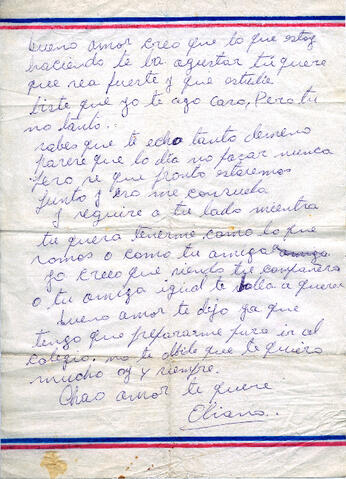 bueno amor creo que lo que estoy
haciendo te va agustar tu quere
que sea fuerte y que estudie
biste que yo te ago caso. Pero tu
no tanto..
sabes que te echo tanto de meno
parere que lo dia no pasar nunca
Pero se que pronto estaremos
junto y eso me consuela
y seguire a tu lado mientra
tu quera tenerme como lo que
somos o como tu amiga
yo creo que siendo tu compañera
o tu amiga igual te balla a querer
bueno amor te dejo ya que
tengo que prepararme para ir al
colegio. no te olbide que te quiero
mucho oy y siempre.
Chao amor te quere
Eliana..